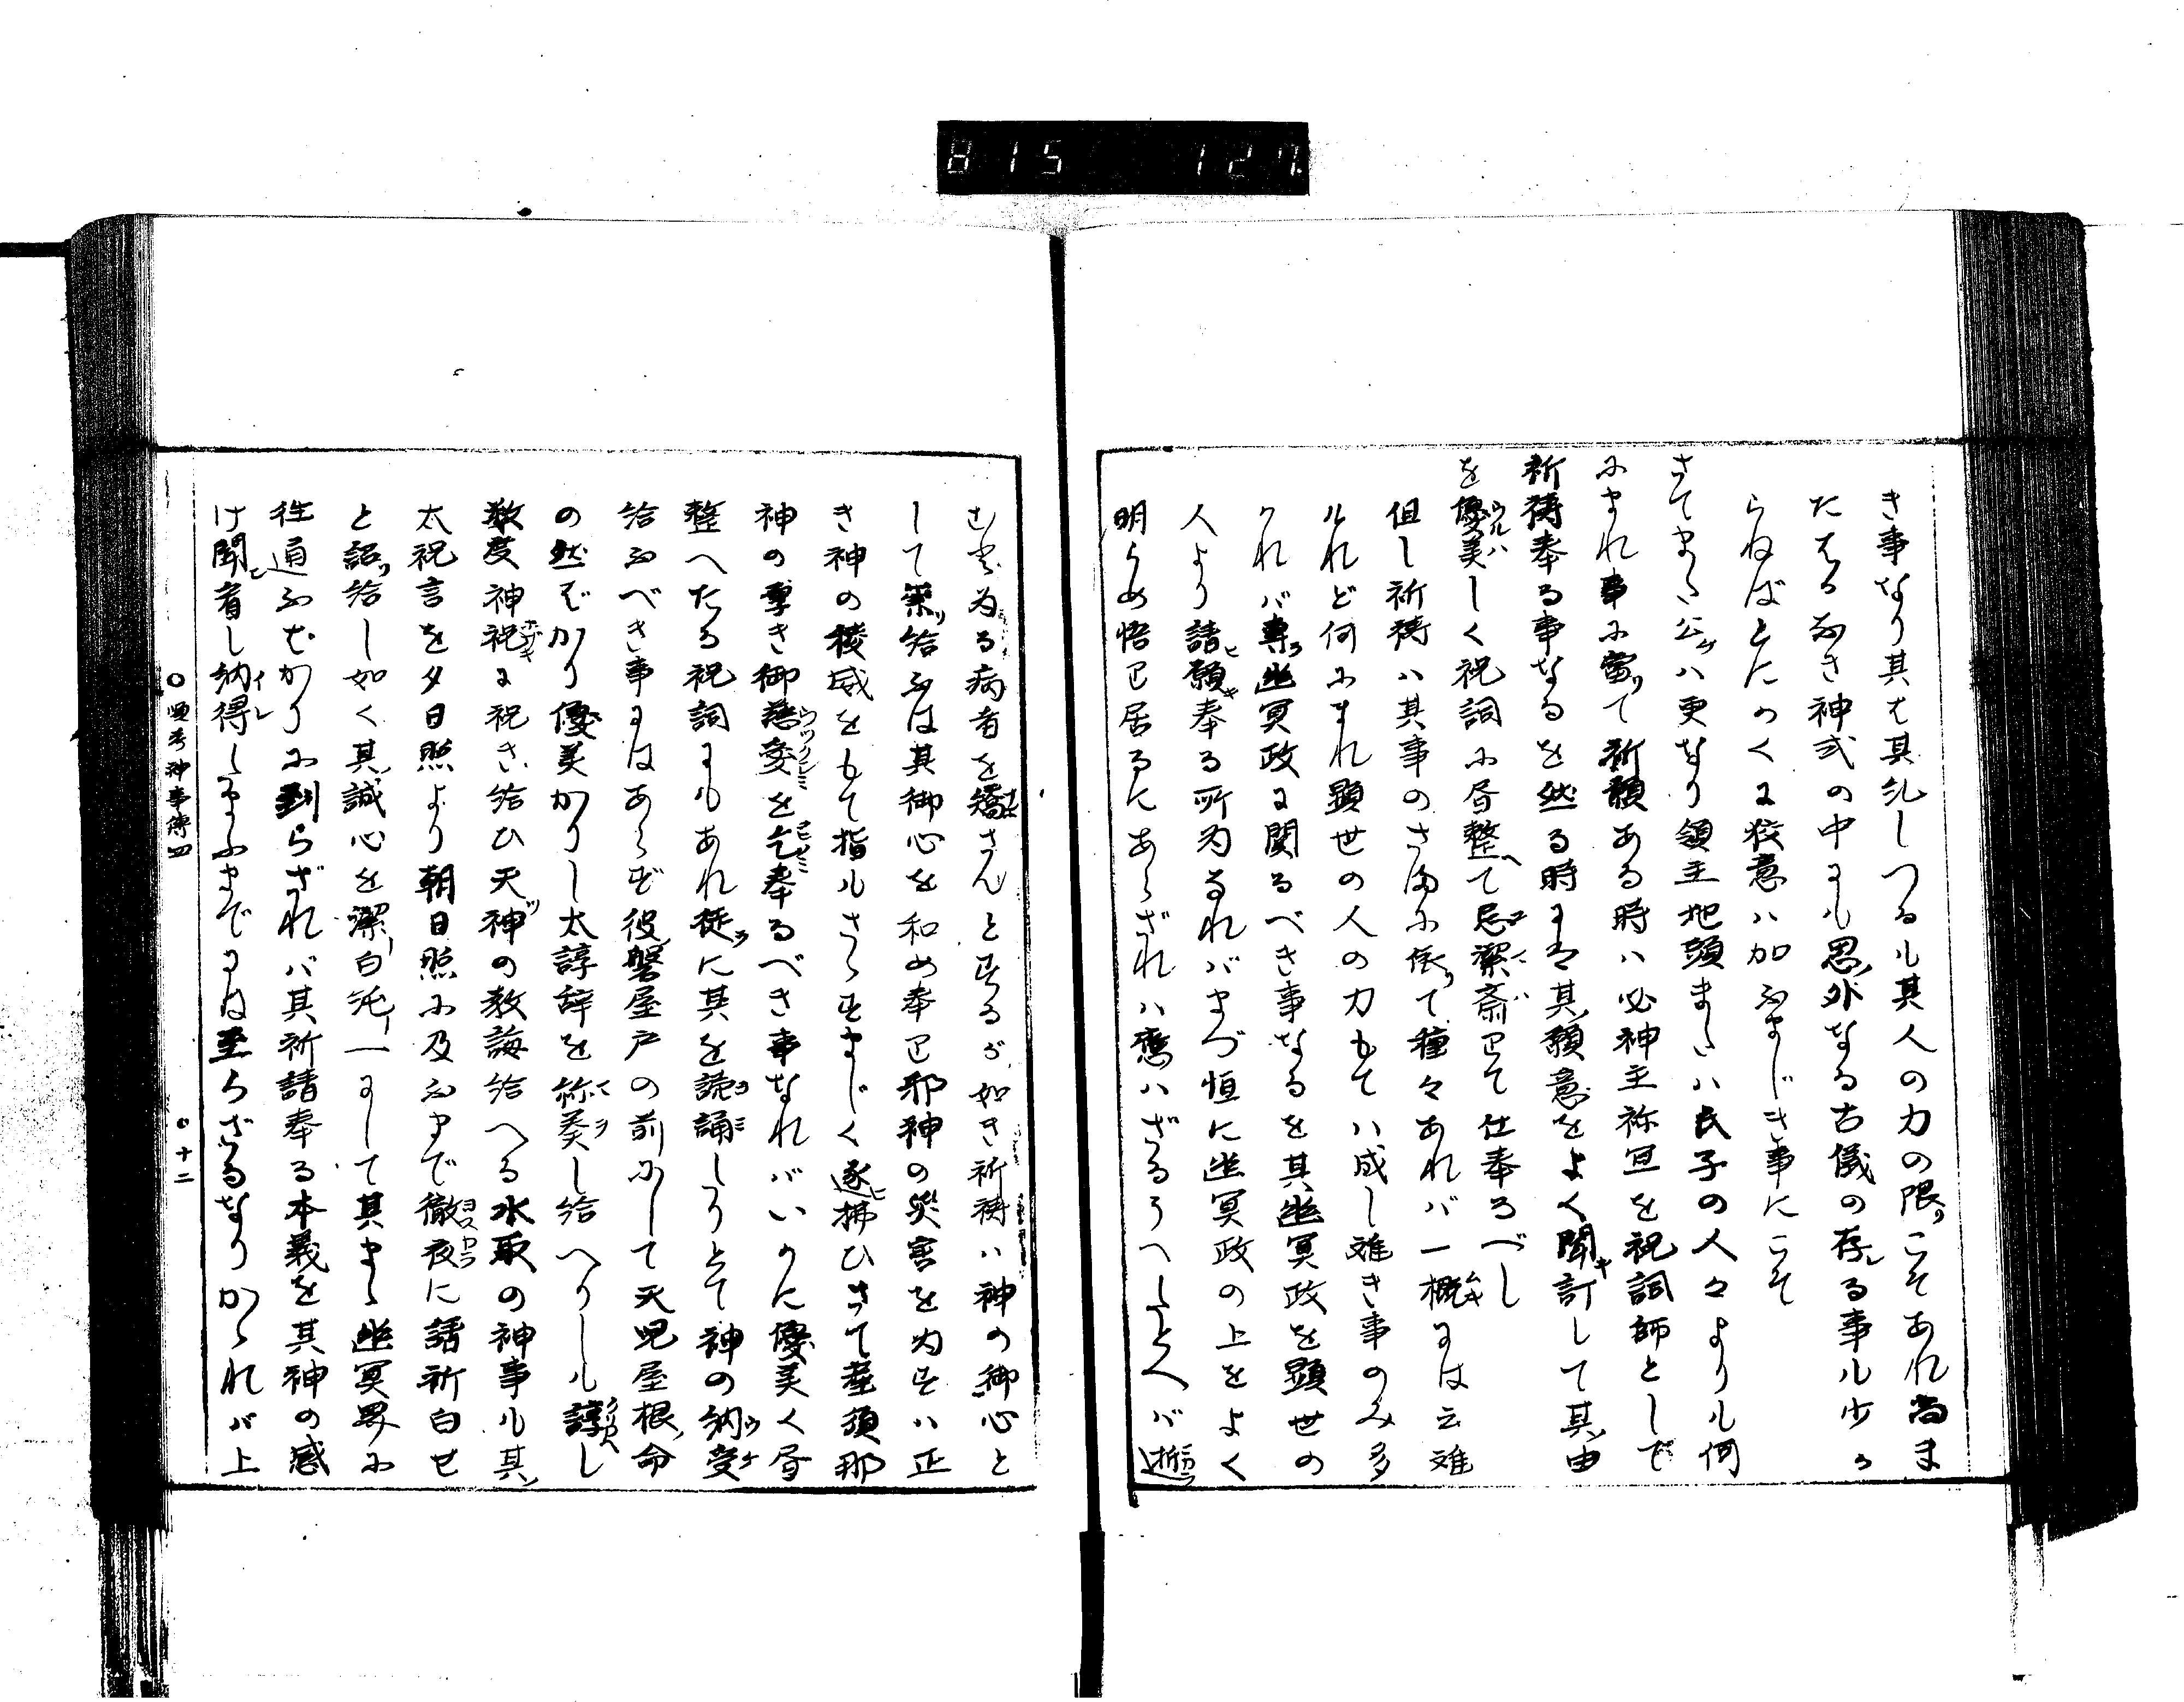 815 127
き事なり其も其礼しつるも其人の力の限りこそあれ尚ま
たはるけき神式の中にも思ノ外なる古儀の存れる事も少か
らねばとにかくに狡意ハ加ふまじき事にこそ
さてまた公ケハ更なり領主地頭またハ氏子の人々よりも何
にまれ事に当りて祈願ある時ハ必神主祢宜を祝詞師として
祈祷奉る事なるを然る時には其ノ願意をよく聞キ訂して其ノ由
を優美しく祝詞に昼整へて忌潔斎りて仕奉るべし
但し祈祷ハ其事のさまに依りて種々あれバ一概には云難
けれど何にまれ顕世の人の力もてハ成し難き事のみ多
かれバ専ラ幽冥政に関るべき事なるを其幽冥政を顕世の
人より請ヒ願キ奉る所為なれバまづ恒に幽冥政の上をよく
明らめ悟り居るにあらざれハ應ハざるうへしたとへバ
むずる病者を矯さんとするが如き祈祷ハ神の御心と
して祟り給ふは其御心を和め奉り邪神の災害を為すハ正
き神の稜威をもて指もさゝすまじく逐ヒ拂ひさて産須那
神の重き御慈愛を乞奉るべき事なれバいかに優美く昼
整へたる祝詞にもあれ徒ラに其を読誦しうとて神の納受
給ふべき事にはあらず彼ノ磐屋戸の前にして天児屋根ノ命
の然ばかり優美かりし太諄辞を称奏し給へりしも諄し
数度神祝に祝き給ひ天ツ神の教誨給へる水取の神事も其ノ
太祝言を夕日照より朝日照に及ふまで徹夜に請祈白せ
と詔り給しし如く其ノ誠心を潔ー白沌ー一にして其まゝ幽冥界に
往通ふばかりに到らざれバ其祈請奉る本義を其神の感
け聞者し納得しまふまでには至らざるなりかゝれバ上
〇
神事傳四
〇十二